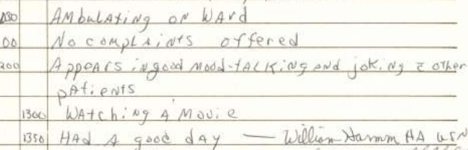 Ambulating on Ward
00 No complaints offered
200 Appears in good mood-talking and joking c̄ other
patients
1300 Watching a Movie
1350 Had a good day — William Hamm HA USN